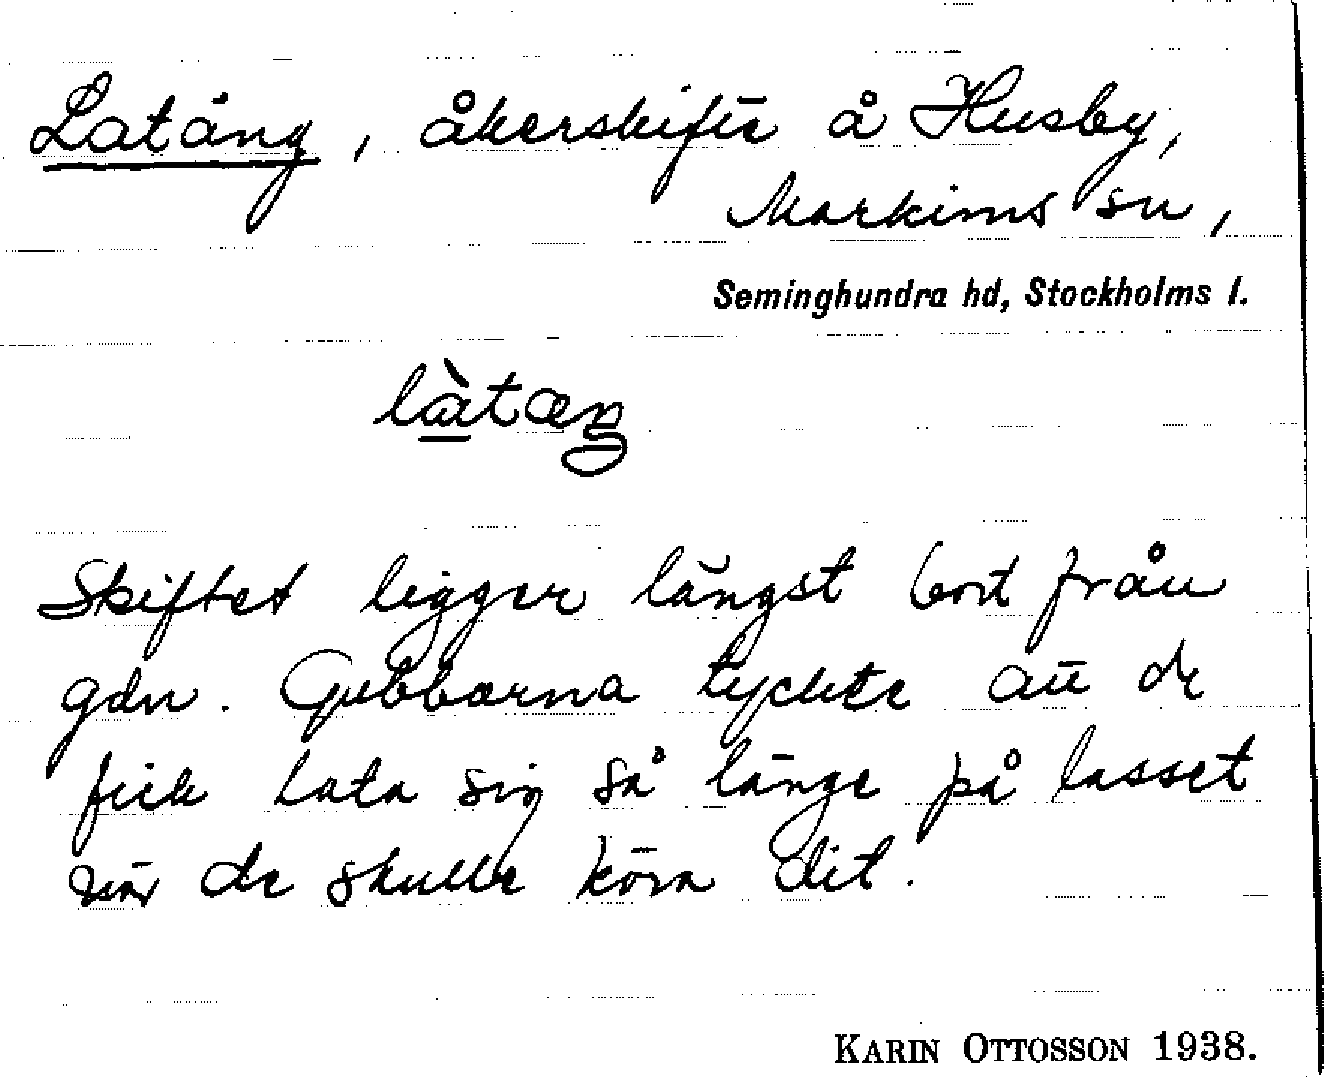 Latäng, åkerskifte å Husby,
Markims sn,
Seminghundra hd, Stockholms l.
là̱tæŋ
Skiftet ligger längst bort från
gdn. Gubbarna tyckte att de
fick lata sig så länge på lasset
när de skulle köra dit.
KARIN OTTOSSON 1938.